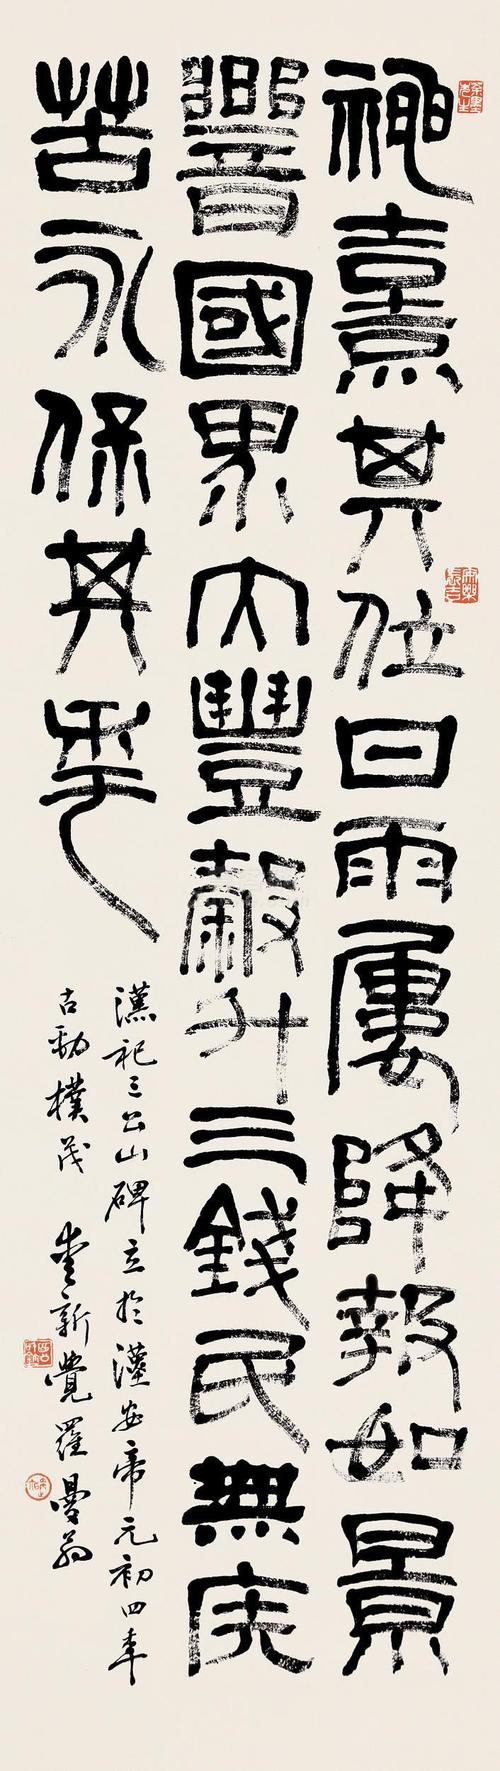 神熹其位甘雨屢降報如景
響國界大豐穀斗三錢民無疾
苦永保其年
漢祀三公山碑立於漢安帝元初四年
古勁樸茂 愛新覺羅曼翁